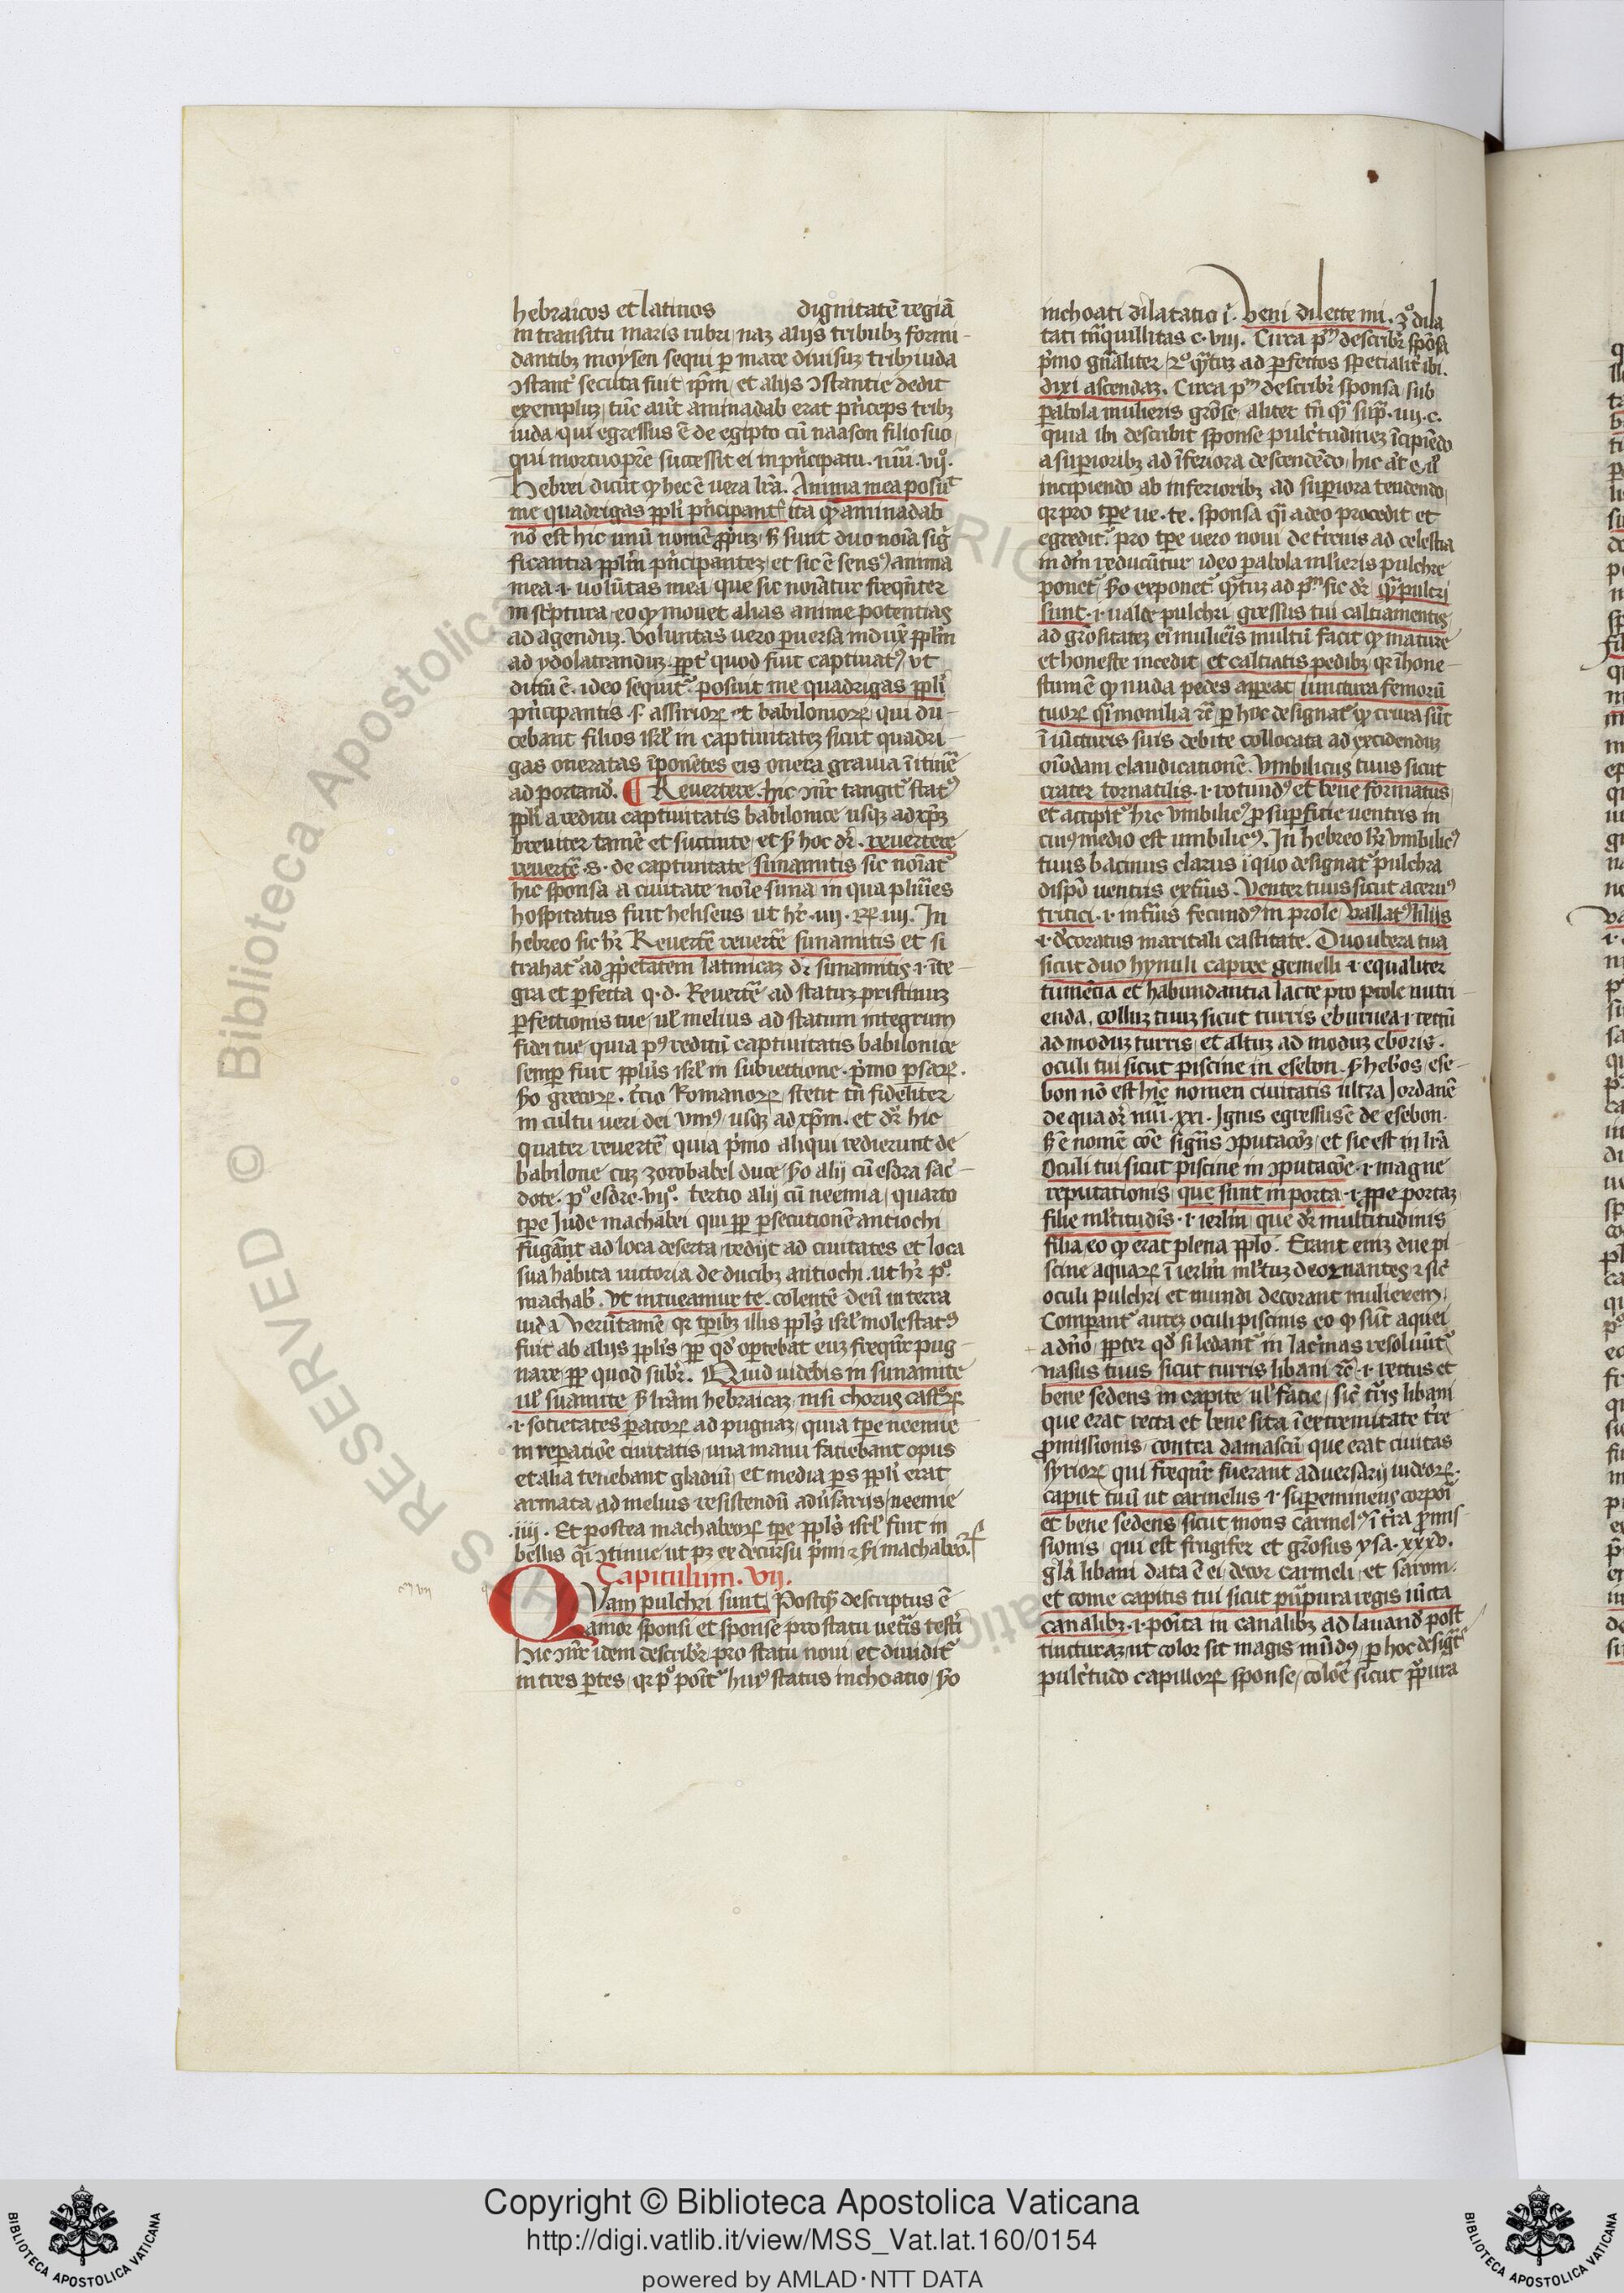 hebraicos et latinos dignitatē regiā
in transitu maris rubri naz alijs tribubz formi-
dantibz moysen sequi per mare diuisuz tribus iuda
ɔstant' secuta fuit ip̄m et alijs ɔstantie dedit
exempluz tūc aūt aminadab erat p'nceps tribz
iuda qui egressus ē de egipto cū naason filio suo
qui mortuo pr̄e successit ei in p'ncipatu. nūi. vijº.
Hebrei dicūt qꝫ hec ē uera lr̄a. Anima mea posuit
me quadrigas ppl'i p'ncipant' ita qꝫ aminadab
nō est hic unū nomē ꝓpuz sꝫ sunt duo noīa sig'
ficantia ppl'm p'ncipantez et sic ē sensꝰ anima
mea .i. uolūtas mea que sic noīatur freqn̄ter
in sc'ptura eo qꝫ mouet alias anime potentias
ad agenduz. Voluntas uero ꝑuersa indux' ppl'm
ad ydolatranduz ppt' quod fuit captiuatꝰ ut
dictū ē. ideo sequit' posuit me quadrigas ppl'i
p'ncipantis .s. assirioꝝ et babilonioꝝ qui du-
cebant filios isrl' in captiuitatez sicut quadri-
gas oneratas īponētes eis onera grauia ī itinē
ad portand'. ¶ Reuertere. hic ɔn̄r tangit' statꝰ
ppl'i a reditu captiuitatis babilonice usqꝫ ad xp̄z
breuiter tamē et succincte et sꝫ hoc dr̄. reuertere
reuertē .s. de captiuitate sunamitis sic noīat'
hic sponsa a ciuitate noīe suna in qua pluries
hospitatus fuit heliseus ut hr̄ .iiij. Rꝝ. iiij. In
hebreo sic hr̄ Reuertē reuertē sunamitis et si
trahat' ad ꝓp'etatem latinicaz dr̄ sunamitis .i. īte-
gra et ꝑfecta q.d. Reuertē ad statuz pristinuz
ꝑfectionis tue uel melius ad statum integrum
fidei tue quia pꝰ reditū captiuitatis babilonice
semꝑ fuit ppl'us isrl' in subiectione. p'mo ꝑsaꝝ.
sꝫo grecoꝝ. t'cio Romanoꝝ stetit tn̄ fideliter
in cultu ueri dei uniꝰ usqꝫ ad xp̄m. et dr̄ hic
quater reuertē quia p'mo aliqui redierunt de
babilone cuz zorobabel duce sꝫo alij cū esdra sac'-
dote. pº esdre. vijº. tertio alij cū neemia quarto
tp̄e Jude machabei qui ꝓp ꝑsecutionē antiochi
fugāt ad loca deserta redijt ad ciuitates et loca
sua habita uictoria de ducibz antiochi. ut hr̄ pº.
machab'. Vt intueamur te. colentē deū in terra
iuda Verūtamē qr tp̄ibz illis ppl'us isrl' molestatꝰ
fuit ab alijs ppl'is ꝓp qd' oportebat euz freqn̄r pug-
nare ꝓp quod subr̄. Quid uidebis in sunamite
uel suamite sꝫ lr̄am hebraicaz nisi chorus castroꝝ
.i. societates paratoꝝ ad pugnaz quia tp̄e neemie
in reparatiōe ciuitatis una manu faciebant opus
et alia tenebant gladiū et media pars ppl'i erat
armata ad melius resistendū adūsarijs neemie
.iiij. Et postea machabeoꝝ tp̄e ppl'us isrl' fuit in
bellis q'i ɔtinue ut pꝫ ex decursu p'mi & sꝫi machabeoꝝ
Capitulum. vij.
QVam pulchri sunt. Postqꝫ descriptus ē
amor sponsi et sponse pro statu uet'is testi
hic ɔn̄r idem describr̄ pro statu noui et diuidit'
in tres partes qr pº ponit' huiꝰ status inchoatio sꝫo
cᵐ vij
inchoati dilatatio i. Veni dilecte mi. 3º dila
tati tr̄quillitas c. viij. Circa pᵐ describr̄ spōsa
p'mo gn̄aliter 2º qꝫtuz ad ꝑfectos specialit' ibi.
dixi ascendaz. Circa pᵐ describr̄ sponsa sub
ꝑabola mulieris grōse aliter tn̄ qꝫ sup̄ .iiij. c.
quia ibi describit sponse pulc'tudinez īcipiēdo
a superioribz ad īferiora descendēdo hic aūt eºuº
incipiendo ab inferioribz ad superiora tendendo
qr pro tp̄e ue. te. sponsa q'i adeo procedit et
egredit'. pro tp̄e uero noui de t'renis ad celestia
in dr̄m reducūtur ideo ꝑabola ml'ieris pulchre
ponet' sꝫo exponet' qꝫtuz ad pᵐ sic dr̄ qꝫ pulcri
sunt .i. ualde pulchri gressus tui calciamentis
ad grōsitatez ei mulieris multū facit qꝫ mature
et honeste incedit et calciatis pedibz qr īhone-
stum ē qꝫ nuda pedes appareat iunctura femorū
tuoꝝ q'i monilia &c̄ per hoc designat' qꝫ crura sūt
ī iūcturis suis debite collocata ad excidenduz
oīmodam claudicationē. Vmbilicus tuus sicut
crater tornatilis .i. rotundꝰ et bene formatus
et accipit' hic umbilicꝰ pro superficie uentris in
cuiꝰ medio est umbilicꝰ. In hebreo hr̄ umbilicꝰ
tuus bacinus clarus ī quo designat' pulchra
dispō uentris exterius. Venter tuus sicut aceruꝰ
tritici .i. interius fecundꝰ in prole uallatꝰ lilijs
.i. d'coratus maritali castitate. Duo ubera tua
sicut duo hynuli capree gemelli .i. equaliter
tumētia et habundantia lacte pro prole nutri-
enda. collum tuuz sicut turris eburnea .i. rectū
ad moduz turris et altuz ad moduz eboris.
oculi tui sicut piscine in esebon. sꝫ heb'os ese-
bon nō est hic nomen ciuitatis ultra Jordanē
de qua dr̄ nūi. xxi. Ignis egressus ē de esebon.
sꝫ ē nomē cōe sign̄s ɔputacōz et sic est in lr̄a
Oculi tui sicut piscine in ɔputacōe .i. magne
reputationis que sunt in porta .i. ꝓpe portaz
filie ml'titudīs .i. ierl'm que dr̄ multitudinis
filia eo qꝫ erat plena ppl'o. Erant eniz due pi-
scine aquaꝝ ī ierl'm ml'tuz deornantes & sic'
oculi pulchri et mundi decorant mulierem
Comparant' autez oculi piscinis eo qꝫ sūt aquei
a dn̄o ꝓpter qd' si ledant' in lac'mas resoluūt'
nasus tuus sicut turris libani &c̄ .i. rectus et
bene sedens in capite uel facie sic' tur'is libani
que erat recta et bene sita ī extremitate t're
ꝓmissionis contra damascū que erat ciuitas
syrioꝝ qui freqn̄r fuerant aduersarij iudeoꝝ.
caput tuū ut carmelus .i. supereminens corpori
et bene sedens sicut mons carmelꝰ ī t'ra ꝓmis-
sionis qui est frugifer et grōsus ysa. xxxv.
gl'a libani data ē ei decor carmeli et sarom.
et come capitis tui sicut purpura regis iūcta
canalibz .i. poīta in canalibz ad lauand' post
tincturaz ut color sit magis mūdꝰ per hoc desig'at'
pulc'tudo capilloꝝ sponse colore sicut purpura
Copyright © Biblioteca Apostolica Vaticana
http://digi.vatlib.it/view/MSS_Vat.lat.160/0154
powered by AMLAD·NTT DATA
BIBLIOTECA APOSTOLICA VATICANA
BIBLIOTECA APOSTOLICA VATICANA